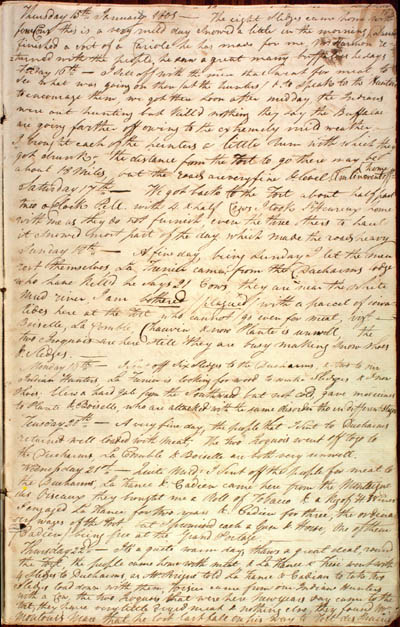 Thursday 15th January 1801 — The eight Sledges came home with
four Cows this is a very mild day Snowed a little in the morning,
finished a sort of a Cariole he has made for me, re-
turned with the people, he saw a great many buffaloes he says
Friday 16th — I sett off with the men that went for meat to
see what was going on there (at the hunters) & to speak to the Hunters
to encourage them, we got there soon after midday, the Indians
were out hunting but kill'd nothing they say the Buffaloe
are going farther off owing to the extremely mild weather,
I brought each of the hunters a little Rum with which they
got drunk, the distance from the Fort to go there may be
about 18 Miles, but the roads are very fine & level
Saturday 17th — We got back to the Fort about half past
two o'Clock P.M. with 4 & half Cows,
with me as they do not furnish even the three trains to haul
it Snowed most part of the day which made the roads heavy
Sunday 18th — A fine day, being Sunday I let the men
rest themselves, La France came from the Buchanns lodge
who have killed he says 21 Cows, they are near the White
Mud river I am bothered (plagued) with a parcel of inva-
lides here at the Fort who cannot go even for meat, viz
Boiselle, La Comble, Chauvin & now Plante is unwell, the
two Iroquois are here still they are busy making Snow Shoes
& Sledges.
Monday 19th — I sent off Six Sledges to the Buchanns, & two to our
Indian Hunters, La France is looking for wood to make Sledges & Snow
Shoes. Blew a hard gale from the Southward but not cold, gave medicines
to Plante & Boiselle, who are attacked with the same disorder tho in different
Tuesday 20th — A very fine day, the people that I sent to Buchanns
returned well loaded with meat, the two Iroquois went off too to
the Buchanns, La Comble & Boiselle are both very unwell.
Wednesday 21st — Quite Mild, I sent off the people for meat to
the Buchanns, La France & Cadien came here from the Montagne
des they brought me a Roll of Tobacco & a Keg of H. Wines
I engaged La France for two years & Cadien for three, the ordinary
wages of the Fort but I promised each a Gun & Horse one of them
(Cadien) being free at the Grand Portage
Thursday 22d — It's a quite warm day thaws a great deal, round
the Fort, the people came home with meat, & La France & Fries went with
4 Sledges to Buchanns, as Mr told La France & Cadien to take two
Sledges load down with them, came from our Indian Hunters
with a Cow the two Iroquois that were here New years day came to the
Fort, they have very little dryed meat & nothing else, they found Mr
man that he lost last fall on his way to Fort des Prairies